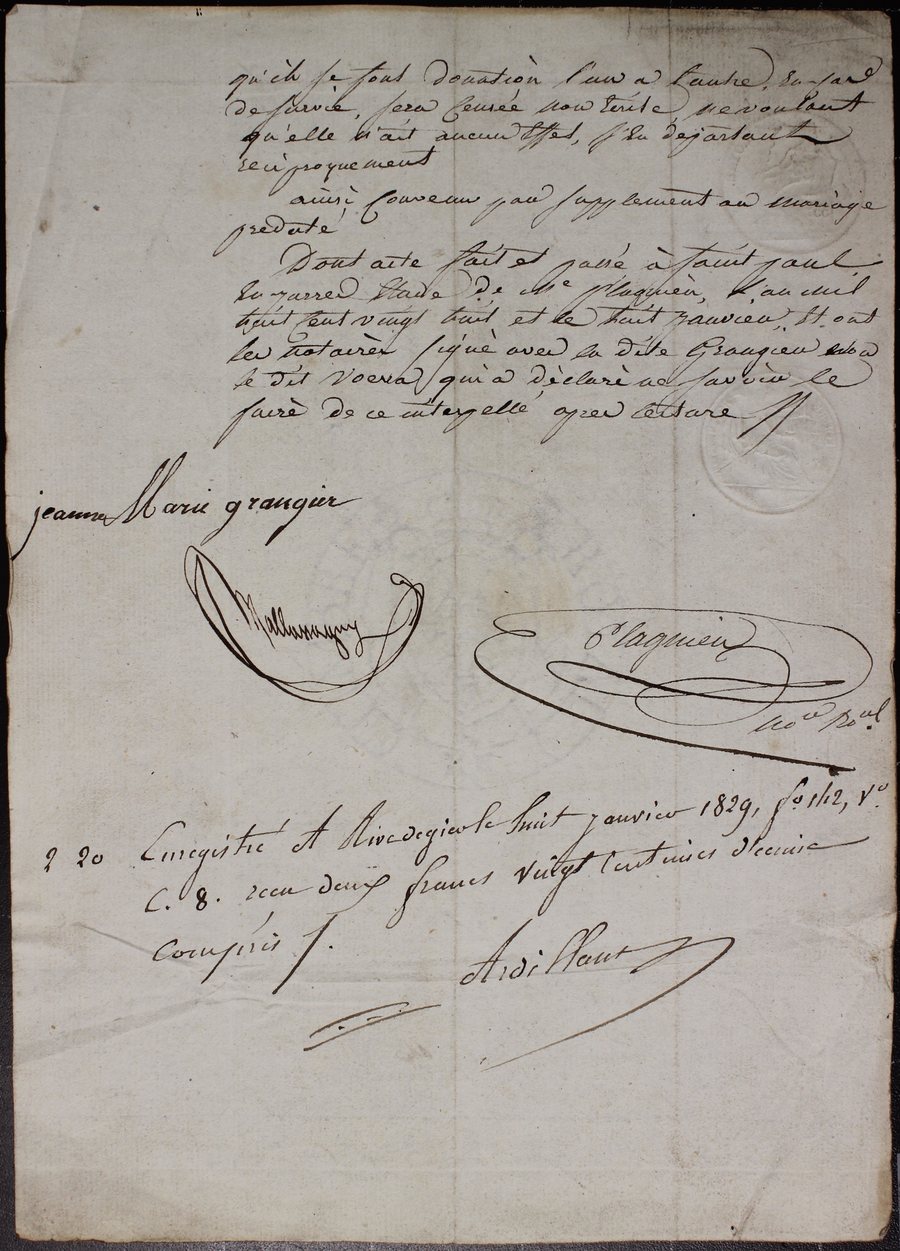 qu'ils se font donation l'un a l'autre, En cas
de survie, sera Censée non Ecrite, ne voulant
qu'elle n'ait aucun Effet, s'En departant
reciproquement
ainsi Convenu par supplement au mariage
predaté
Dont acte fait et passé à saint paul
En Etude de Me Plagnieu, L'an mil
huit Cent vingt huit et le huit Janvier, Et ont
les notaires signé avec la dite Grangier non
le dit qui a déclaré ne savoir le
faire de ce interpellé après lecture
jeanne Marie grangier
Plagnieu
No.re Ro.al
2 20 Enregistré A Rivedegier le huit janvier 1829, fo 142, Vo.
C. 8. recu deux francs vingt Centimes decime
Compris
Ardillon